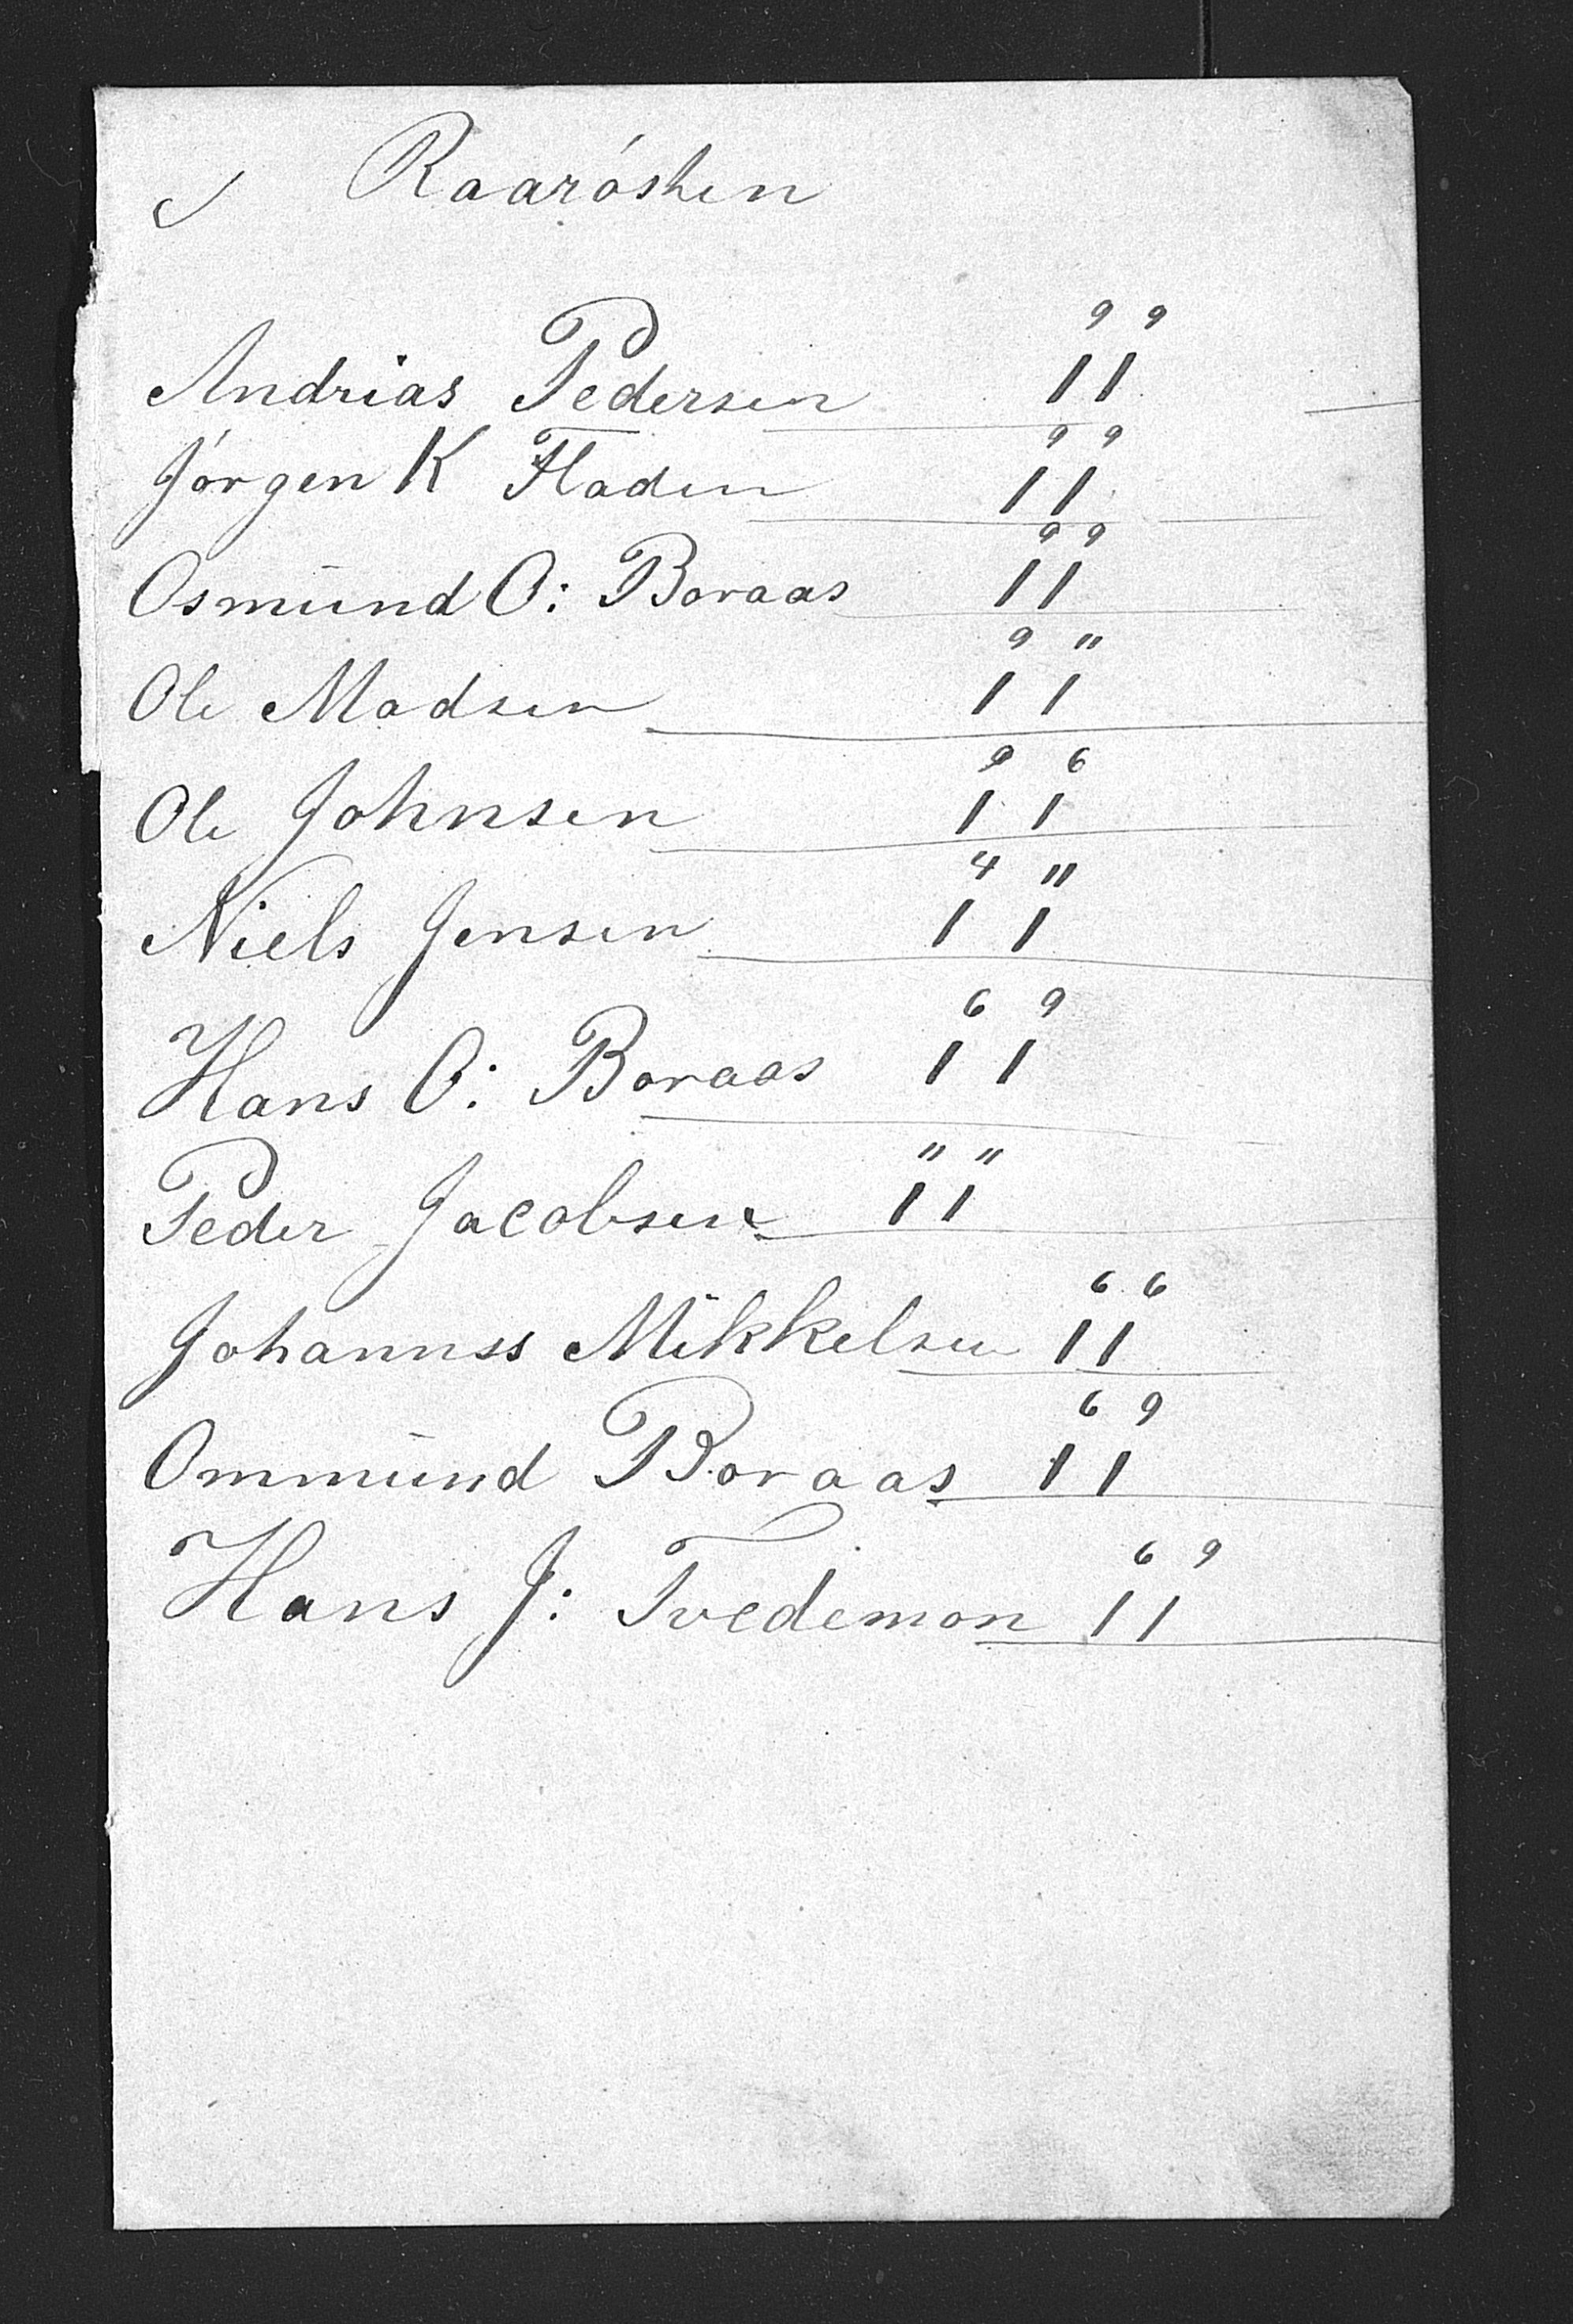 Raaróshen
9 9
Andrias Pedersen 11
9 9
Jórgen K Fladen 11
9 9
Osmund O: Boraas 11
9 "
Ole Madsen 1 1
9 6
Ole Johnsen 1 1
4 "
Niels Jensen 1 1
6 9
Hans O: Boraas 1 1
" "
Peder Jacobsen 11
6 6
Johannss Mikkelsen 11
6 9
Ommund Boraas 11
6 9
Hans J: Tvedemon 11